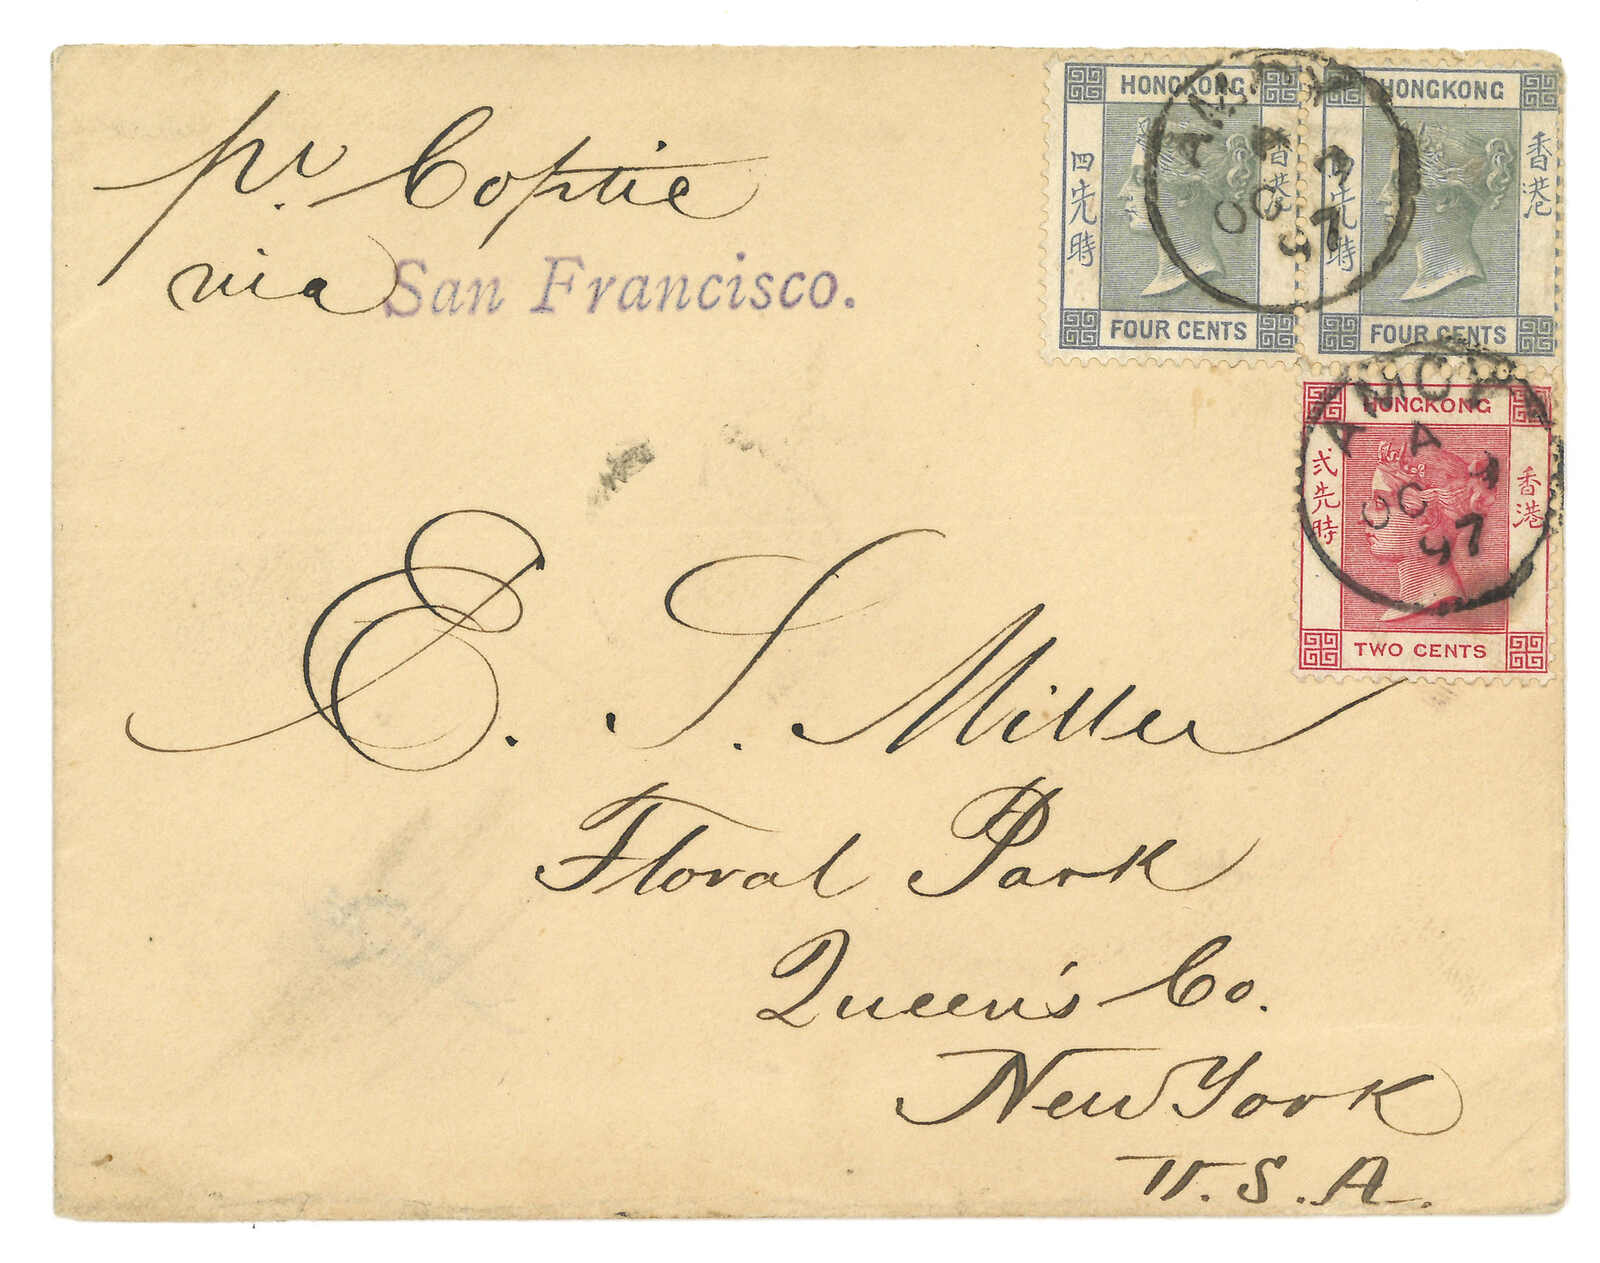 pr. Coptic
via San Francisco.
HONGKONG
四先時
香港
FOUR CENTS
HONGKONG
先時
香港
FOUR CENTS
AMOY
A
OC
97
HONGKONG
弍先時
香港
TWO CENTS
AMOY
A
OC
97
E. S. Miller
Floral Park
Queen's Co.
New York
U.S.A.